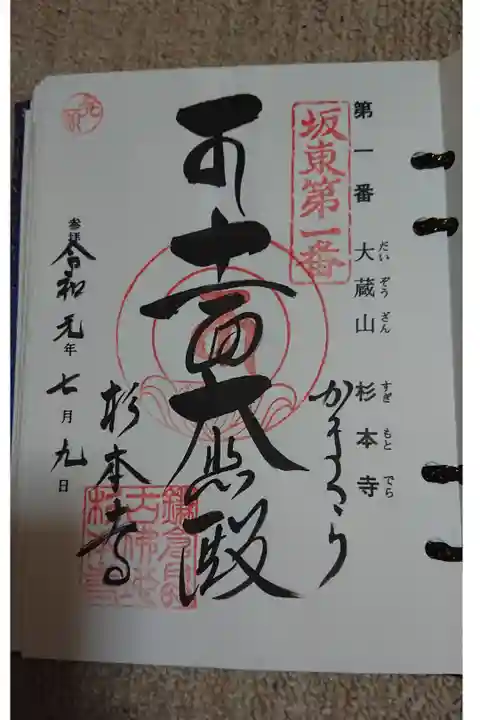 第一番 大蔵山 杉本寺
だい ぞう ざん すぎ もと でら
坂東第一番
かまくら
十一面大悲殿
杉本寺
参拝 令和元年七月九日